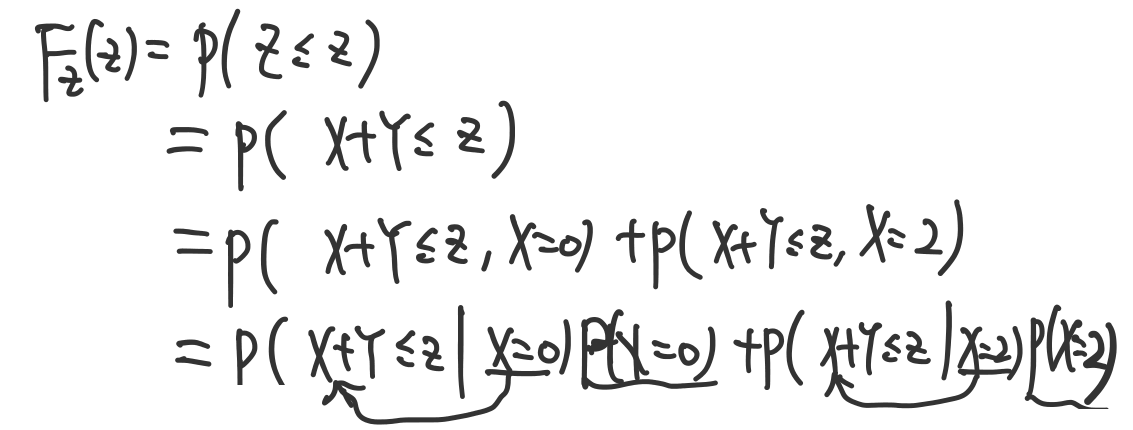 F_Z(z) = P(Z ≤ z)
= P(X+Y ≤ z)
= P(X+Y ≤ z, X=0) + P(X+Y ≤ z, X=2)
= P(X+Y ≤ z | X=0) P(X=0) + P(X+Y ≤ z | X=2) P(X=2)